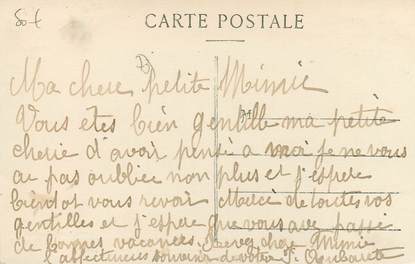 80f
CARTE POSTALE
Ma chere petite Mimie
Vous etes bien gentille ma petite
cherie d'avoir pensé a moi je ne vous
ai pas oubliee non plus et j'espere
bientot vous revoir Merci de toutes vos
gentilles et j'espere que vous avez passé
de bonnes vacances. Recevez chere Mimie
l'affectueux souvenir de votre